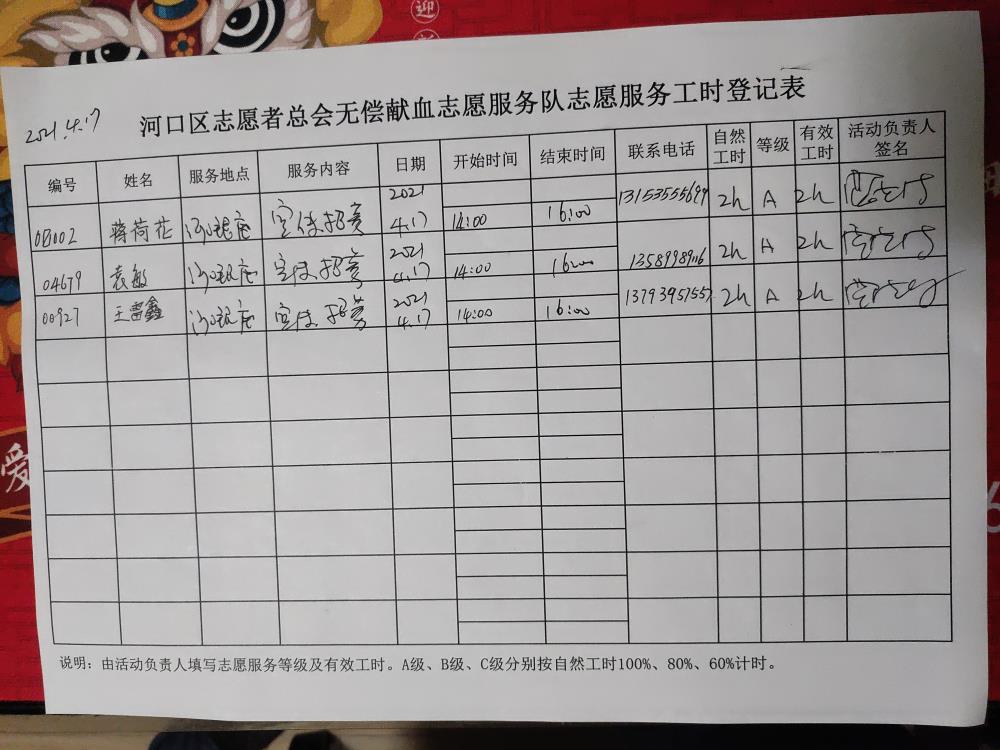 迎
2021.4.17
河口区志愿者总会无偿献血志愿服务队志愿服务工时登记表
编号 姓名 服务地点 服务内容 日期 开始时间 结束时间 联系电话 自然工时 等级 有效工时 活动负责人签名
0B002 蒋荷花 宣传招募 2021 4.17 14:00 16:00 2h A 2h
04679 袁敏 宣传招募 2021 4.17 14:00 16:00 2h A 2h
00927 王雷鑫 宣传招募 2021 4.17 14:00 16:00 13793957557 2h A 2h
爱
说明：由活动负责人填写志愿服务等级及有效工时。A级、B级、C级分别按自然工时100%、80%、60%计时。